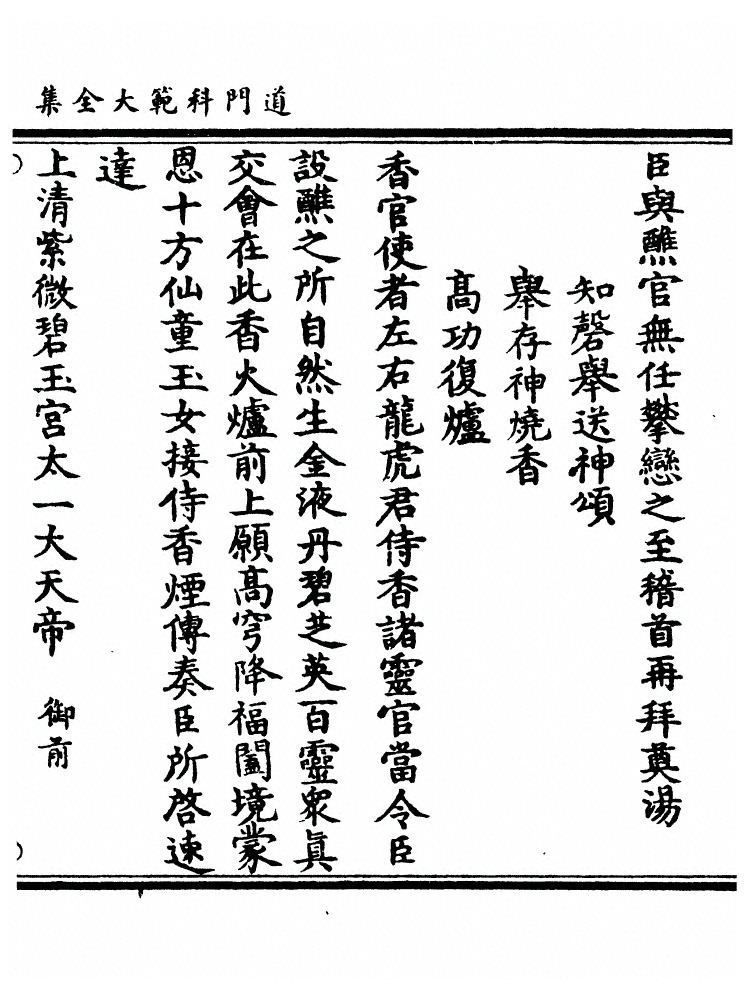 道門科範大全集
臣與醮官無任攀戀之至稽首再拜奠湯
知磬舉送神頌
舉存神燒香
高功復爐
香官使者左右龍虎君侍香諸靈官當令臣
設醮之所自然生金液丹碧芝英百靈衆眞
交會在此香火爐前上願高穹降福闔境蒙
恩十方仙童玉女接侍香煙傳奏臣所啓速
達
上清紫微碧玉宮太一大天帝 御前